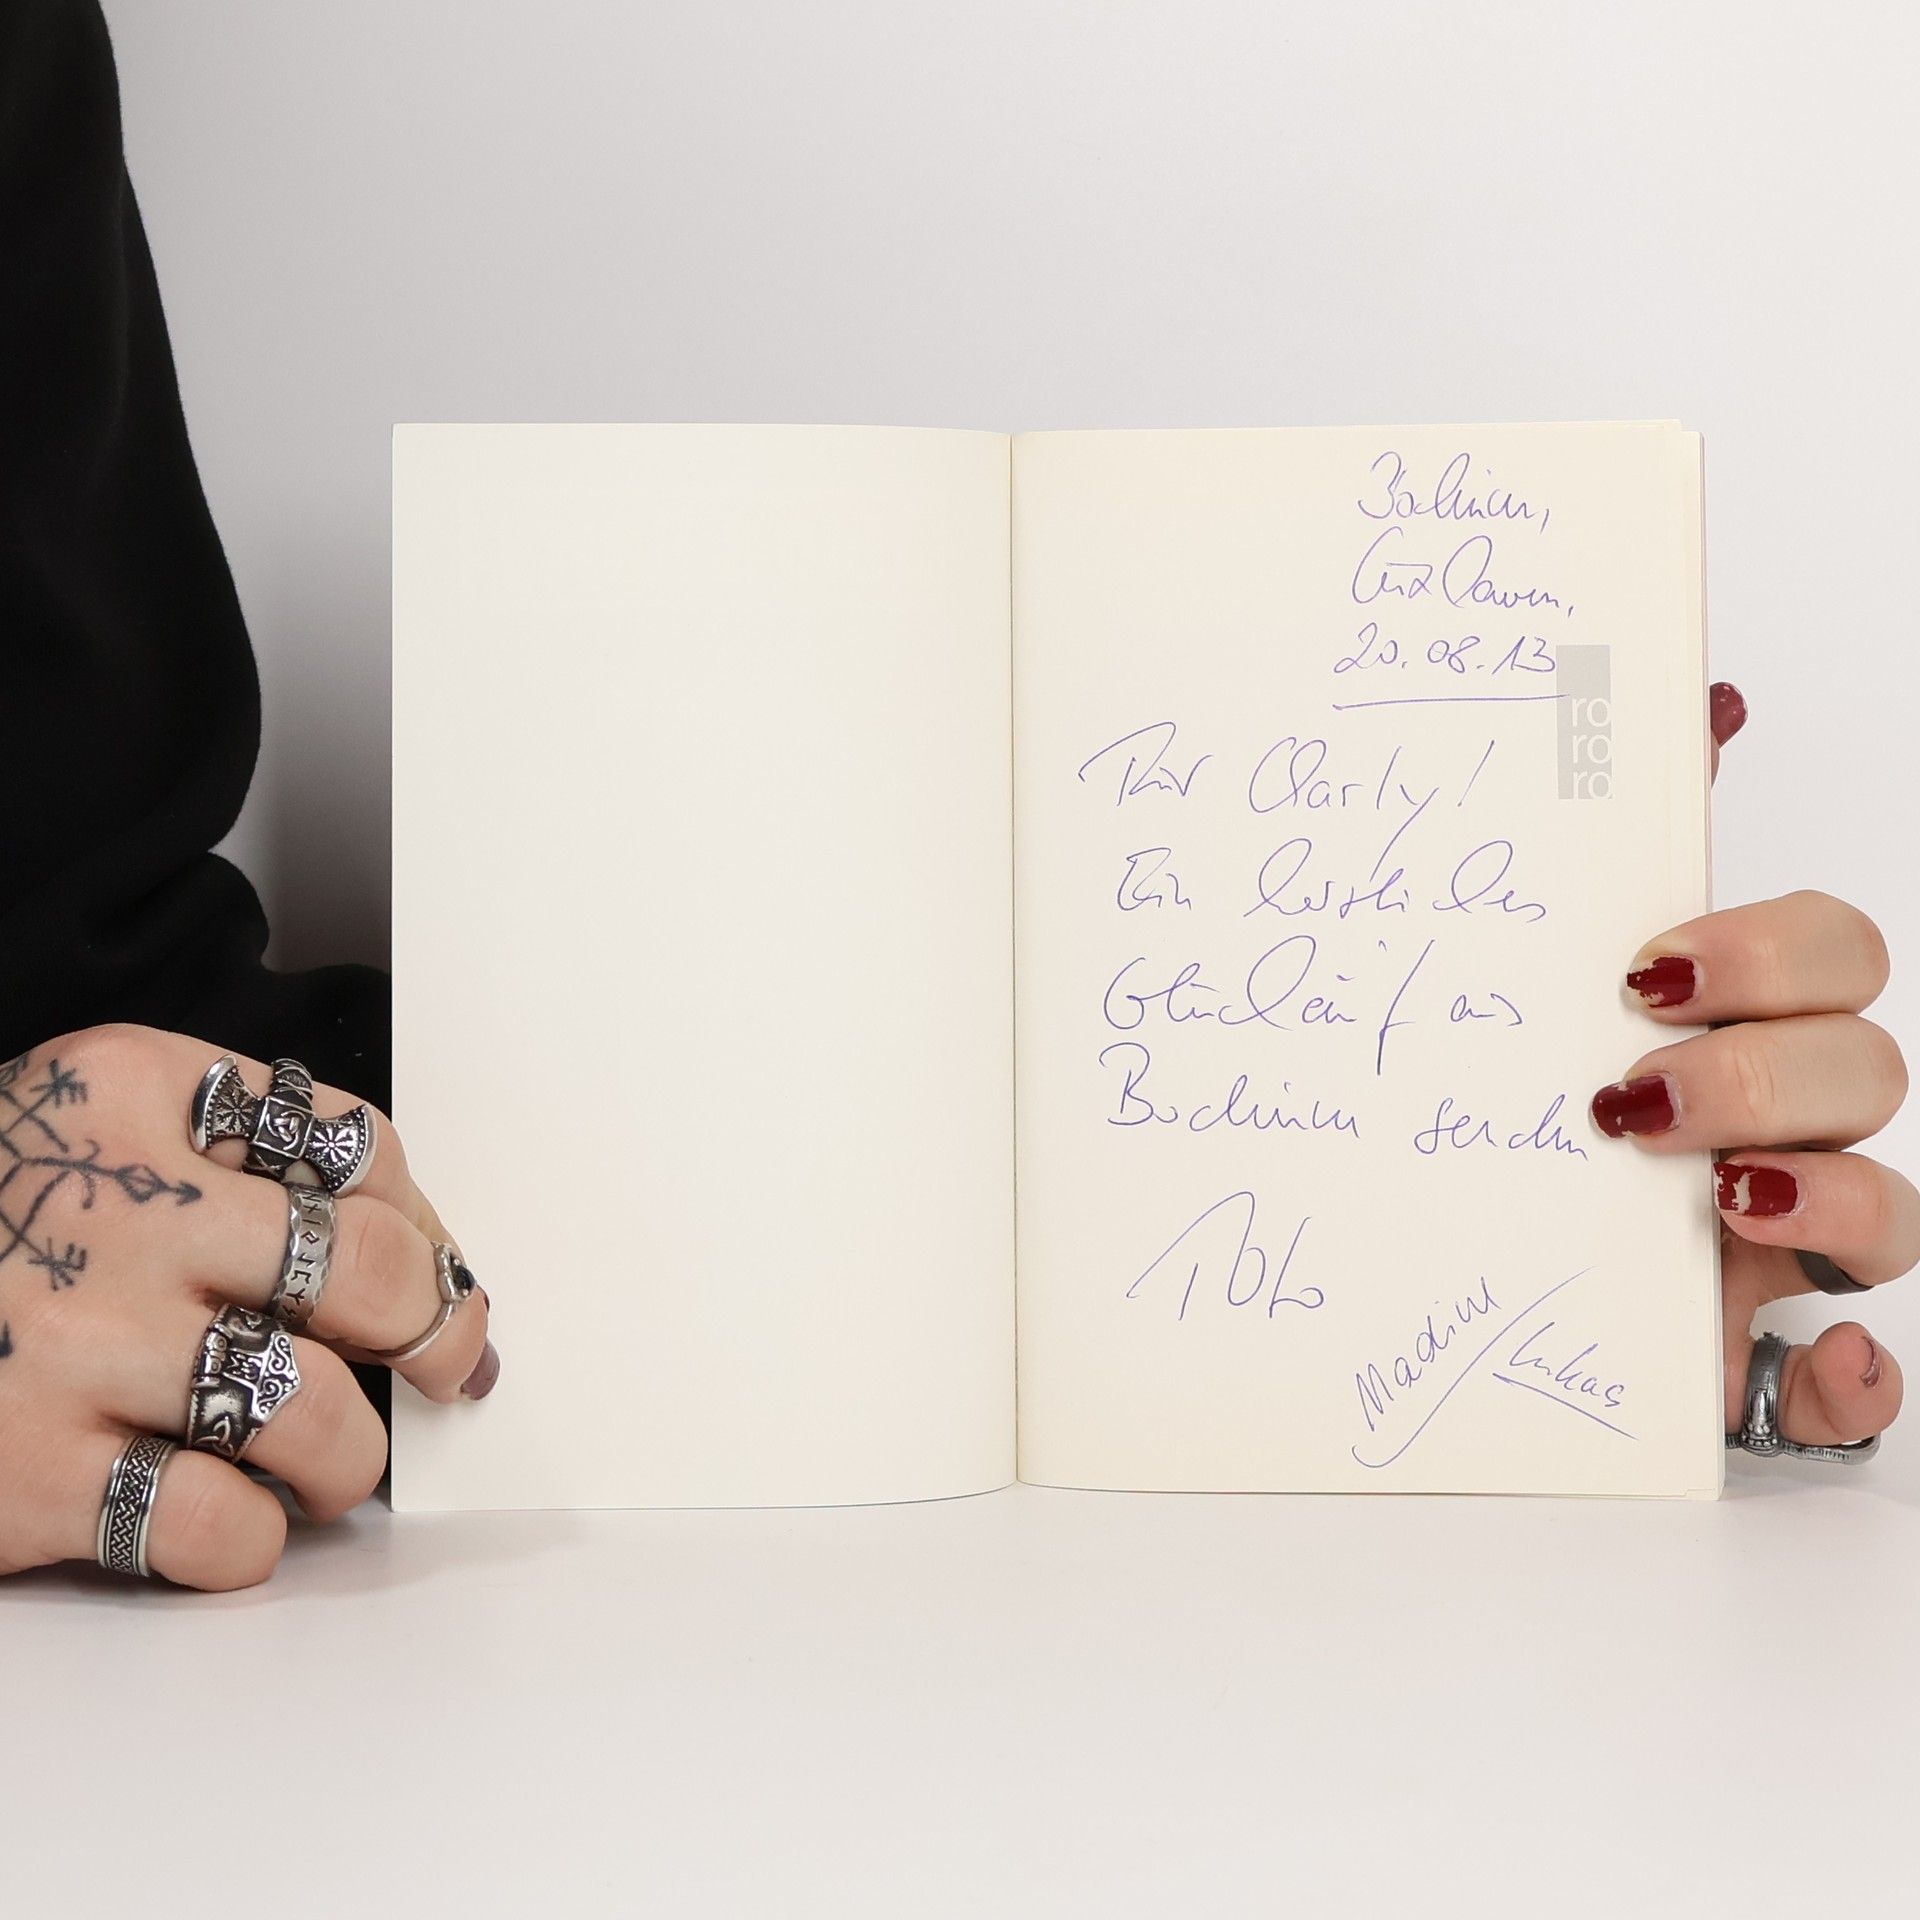 Bochum,
20.08.13
ro
ro
ro
Für Charly!
Ein herzliches
Glückauf aus
Bochum senden
Madine
Lukas